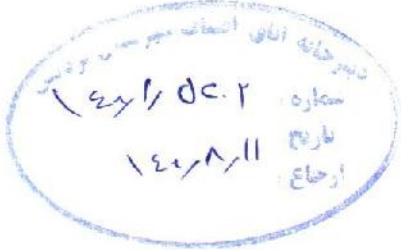 دبیرخانه اتاق اصناف شهرستان پردیس
شماره : ۱۴۰۰/۱/۵۲۰۲
تاریخ ۱۴۰۰/۸/۱۱
ارجاع :